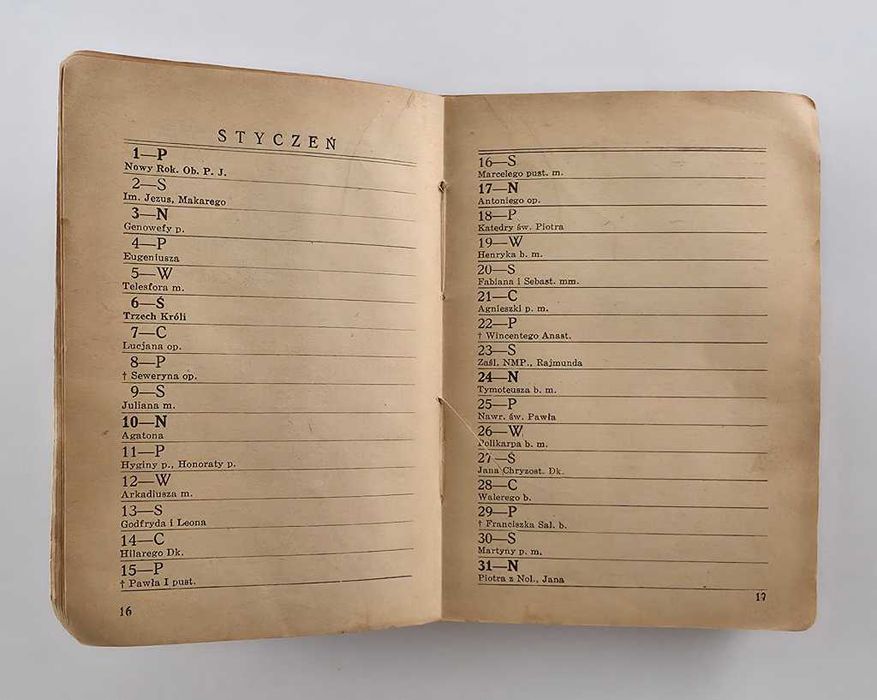 STYCZEŃ
1—P
Nowy Rok. Ob. P. J.
2—S
Im. Jezus, Makarego
3—N
Genowefy p.
4—P
Eugenjusza
5—W
Telesfora m.
6—Ś
Trzech Króli
7—C
Lucjana op.
8—P
† Seweryna op.
9—S
Juliana m.
10—N
Agatona
11—P
Hyginy p., Honoraty p.
12—W
Arkadiusza m.
13—S
Godfryda i Leona
14—C
Hilarego Dk.
15—P
† Pawła I pust.
16
16—S
Marcelego pust. m.
17—N
Antoniego op.
18—P
Katedry św. Piotra
19—W
Henryka b. m.
20—S
Fabiana i Sebast. mm.
21—C
Agnieszki p. m.
22—P
† Wincentego Anast.
23—S
Zaśl. NMP., Rajmunda
24—N
Tymoteusza b. m.
25—P
Nawr. św. Pawła
26—W
Polikarpa b. m.
27—Ś
Jana Chryzost. Dk.
28—C
Walerego b.
29—P
† Franciszka Sal. b.
30—S
Martyny p. m.
31—N
Piotra z Nol., Jana
17